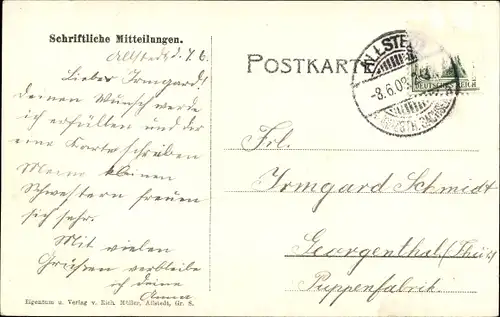 Schriftliche Mitteilungen.
Allstedt
Lieber Irmgard!
Deinen Wunsch werde
ich erfüllen und dir
eine Karte schreiben
Meine kleinen
Schwestern freuen
sich sehr.
Mit vielen
Grüßen verbleibe
ich deine
Anna
Eigentum u. Verlag v. Rich. Müller, Allstedt, Gr. S.
POSTKARTE
ALLSTEDT
-8.6.08
DEUTSCHES REICH
Frl.
Irmgard Schmidt
Georgenthal (Thür)
Puppenfabrik.